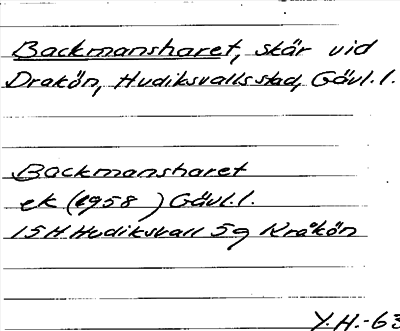 Backmansharet, skär vid
Drakön, Hudiksvalls stad, Gävl. l.
Backmansharet
ek (1958 ) Gävl. l.
15H Hudiksvall 5g Kråkön
Y. H. - 63